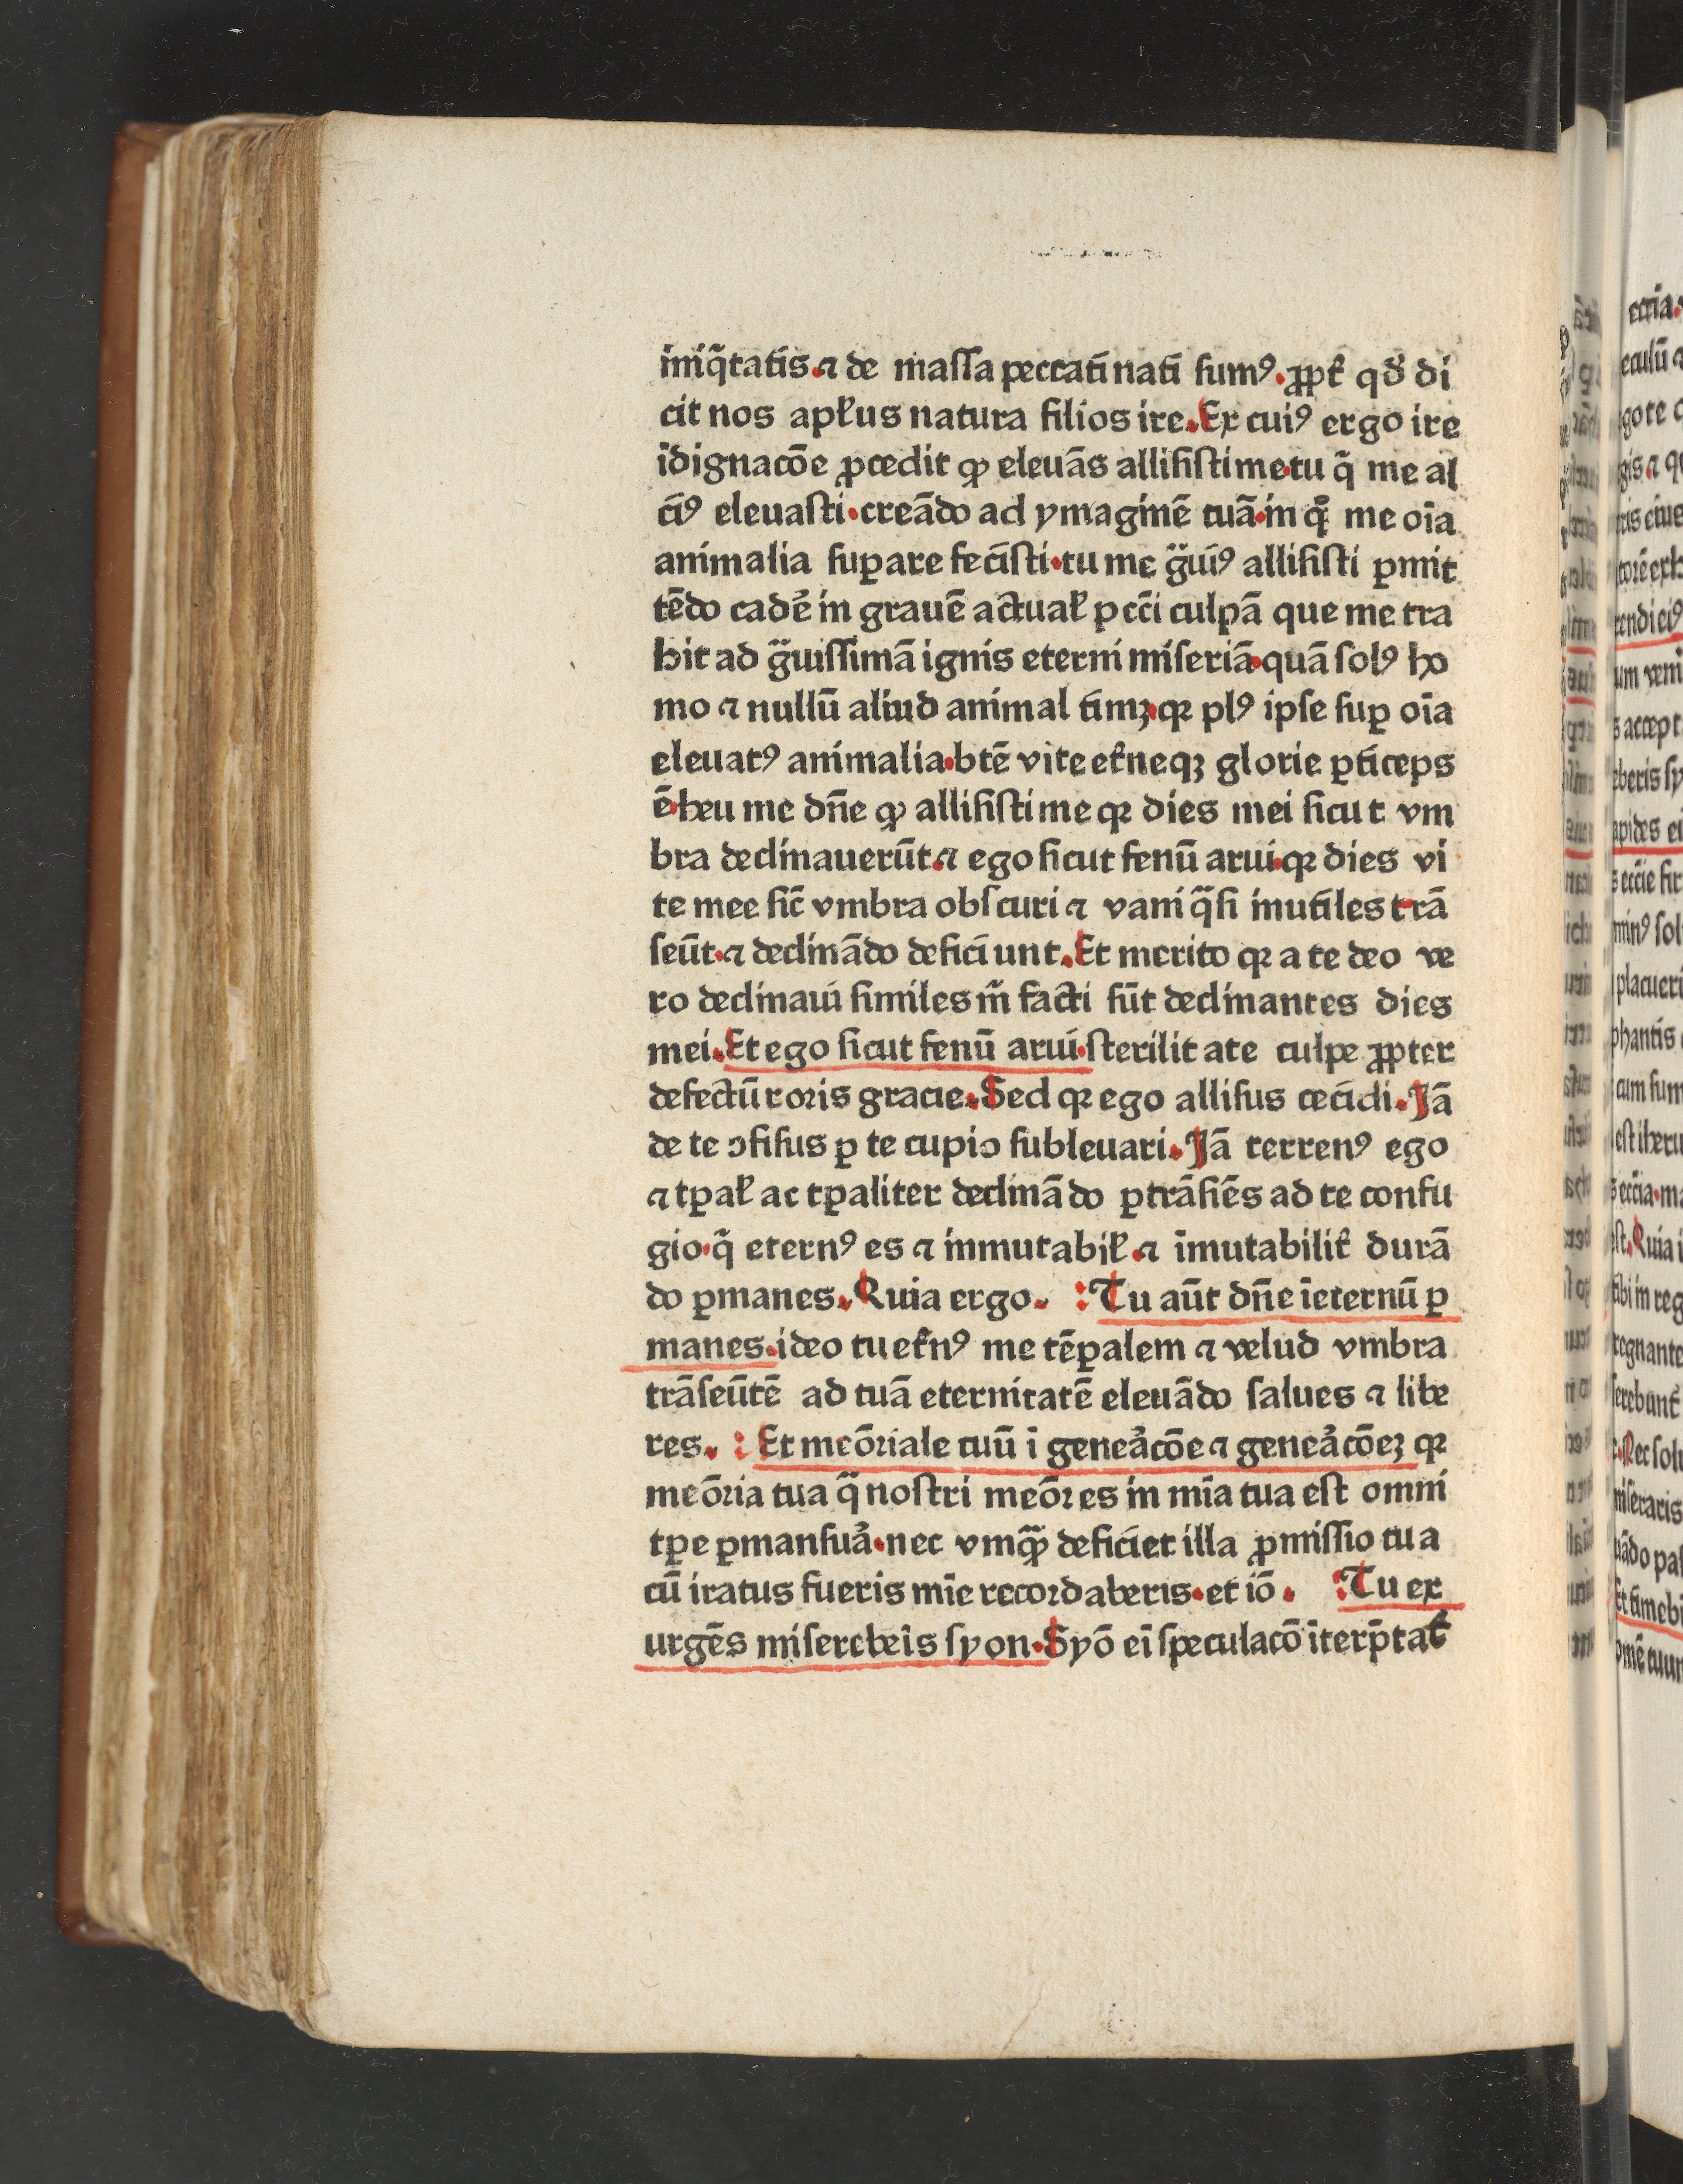 iniq̃tatis.⁊ de massa peccati nati sumꝰ.ꝓpt̉ qđ di
cit nos apłus natura filios ire.Ex cuiꝰ ergo ire
īdignacōe ꝓcedit ꝙ eleuās allisisti me.tu q̄ me al
ciꝰ eleuasti.creādo ad ymaginē tuā.in qͦ me oīa
animalia suꝑare fecisti.tu me gͣuiꝰ allisisti ꝑmit
tēdo cadẻ in grauē actual̵ pcc̄i culpā que me tra
hit ad gͣuissimā ignis eterni miseriā.quā solꝰ ho
mo ⁊ nullū aliud animal timꝫ.qꝛ plꝰ ipse suꝑ oīa
eleuatꝰ animalia.btē vite et̉neqꝫ glorie ꝑticeps
ē.heu me dn̄e ꝙ allisisti me qꝛ dies mei sicut vm
bra declinauerūt.⁊ ego sicut fenū arui.qꝛ dies vi
te mee sic̄ vmbra obscuri ⁊ vani qͣsi inutiles trā
seūt.⁊ declinādo deficiunt.Et merito qꝛ a te deo ve
ro declinaui similes m̄ facti sūt declinantes dies
mei.Et ego sicut fenū arui.sterilitate culpe ꝓpter
defectū roris gracie.Sed qꝛ ego allisus cecidi.Jā
de te ɔfisus ꝑ te cupio subleuari.Jā terrenꝰ ego
⁊ tꝑal̵ ac tꝑaliter declinādo ꝑtrāsiēs ad te confu
gio.q̄ eternꝰ es ⁊ inmutabil̵.⁊ īmutabilit̉ durā
do ꝑmanes.Quia ergo. :Tu aūt dn̄e īeternū ꝑ
manes.ideo tu et̉nꝰ me tēꝑalem ⁊ velud vmbra
trāseūtē ad tuā eternitatē eleuādo salues ⁊ libe
res. :Et meōriale tuū ī geneảcōe ⁊ geneảcōeꝫ qꝛ
meōria tua qͣ nostri meōres in mīa tua est omni
tꝑe ꝑmansuả.nec vmqͣꝫ deficiet illa ꝓmissio tua
cū iratus fueris mīe recordaberis.et iō. :Tu ex
urgēs misereb̉eis syon.Syō ei̅ speculacō īterp̄tat̉